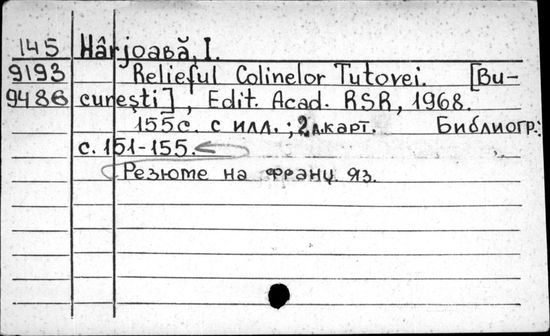 145 Hârjoabă, I.
9193 Relieful Colinelor Tutovei. [Bu-
9486 curești], Edit. Acad. RSR, 1968.
155с. с илл.; 2л.карт. Библиогр.:
с. 151-155.
Резюме на франц. яз.